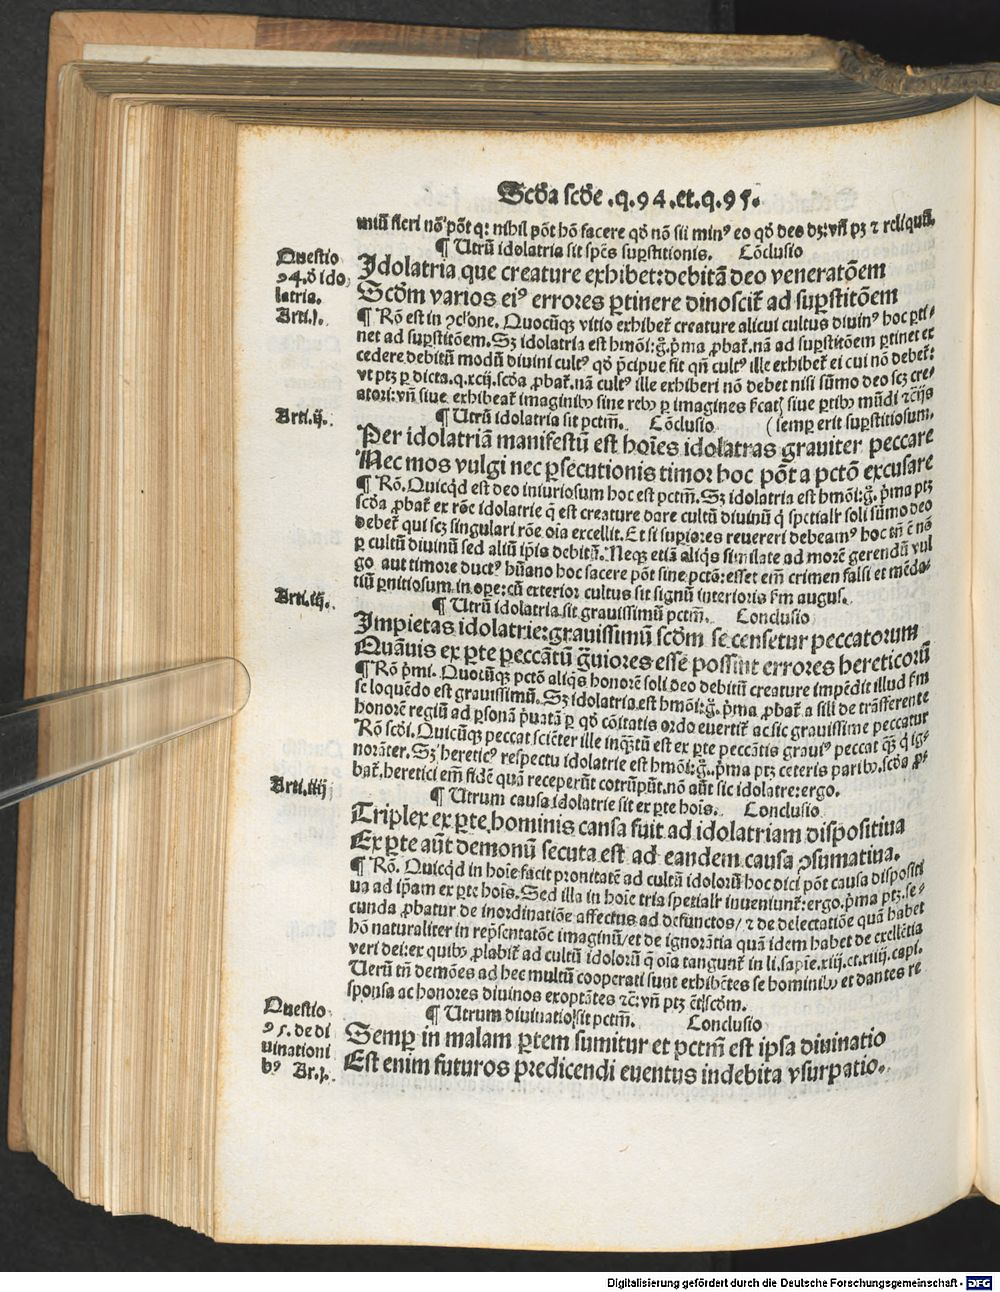 Scd̄a scd̄e .q.94.et.q.95.
miū fieri nō pōt q: nihil pōt hō facere qd̄ nō sii minꝰ eo qd̄ des dꝫ: vñ pꝫ ⁊ reliquū.
¶ Utrū idolatria sit spēs suꝑstitionis. Cōclusio
Questio
94. ď ido
latria.
Arti.j.
Idolatria que creature exhibet: debitā deo veneratōem
Scd̄m varios eiꝰ errores ꝑtinere dinoscit᷑ ad suꝑstitōem
¶ Rō est in ꝯclꝰone. Quocūqꝫ vitio exhibet᷑ creature alicui cultus diuinꝰ hoc ꝑti-
net ad suꝑstitōem. Sꝫ idolatria est hmōi: g̃. p̄ma ꝓbat᷑. nā ad suꝑstitōem ꝑtinet ex
cedere debitū modū diuini cultꝰ qd̄ p̄cipue fit qn̄ cultꝰ ille exhibet᷑ ei cui nō debet᷑:
vt ptꝫ ꝑ dicta.q.xcij. scd̄a ꝓbat᷑. nā cultꝰ ille exhiberi nō debet nisi sūmo deo scꝫ cre-
atori: vñ siue exhibeat᷑ imaginibꝫ sine rebꝫ ꝑ imagines siue ꝑtibꝫ mūdi
Arti.ij.
¶ Utrū idolatria sit pctm̄. Cōclusio (semꝑ erit suꝑstitiosum.
Per idolatriā manifestū est hoīes idolatras grauiter peccare
Nec mos vulgi nec ꝑsecutionis timor hoc pōt a pctō excusare
¶ Rō. Quicqd̄ est deo iniuriosum hoc est pctm̄. Sꝫ idolatria est hmōi: g̃. p̄ma ptꝫ
scd̄a ꝓbat᷑ ex rōe idolatrie q̄ est creature dare cultū diuinū q̄ spetialr̄ soli sūmo deo
debet᷑ qui scꝫ singulari rōe oīa excellit. Et si suꝑiores reuereri debeamꝰ hoc tn̄ ē nō
ꝑ cultū diuinū sed aliū ip̄is debitū. Neqꝫ etiā aliq̄s similate ad morē gerendū vul
go aut timore ductꝰ hūano hoc facere pōt sine pctō: esset em̄ crimen falsi et mēda-
tiū ꝑnitiosum in oꝑe: cū exterior cultus sit signū interioris fm augus.
Arti.iij.
¶ Utrū idolatria sit grauissimū pctm̄. Conclusio
Impietas idolatrie: grauissimū scd̄m se censetur peccatorum
Quāuis ex ꝑte peccātū g̃uiores esse possint errores hereticorū
¶ Rō p̄mi. Quocūqꝫ pctō aliq̄s honorē soli deo debitū creature impēdit illud fm
se loquēdo est grauissimū. Sꝫ idolatria est hmōi: g̃. p̄ma ꝓbat᷑ a sili de trāsferente
honorē regiū ad ꝑsonā p̄uatā ꝑ qd̄ cōitatis ordo euertit᷑ ac sic grauissime peccatur
Rō scd̄i. Quicūqꝫ peccat sciēter ille inq̄tū est ex ꝑte peccātis grauiꝰ peccat q̄ꝫ q̄ ig-
norāter. Sꝫ hereticꝰ respectu idolatrie est hmōi: g̃. p̄ma ptꝫ ceteris paribꝫ. scd̄a ꝓ-
bat᷑. heretici em̄ fidē quā receperūt cotrūpūt. nō aūt sic idolatre: ergo.
Arti.iiij
¶ Utrum causa idolatrie sit ex ꝑte hoīs. Conclusio
Triplex ex ꝑte hominis causa fuit ad idolatriam dispositiua
Ex ꝑte aūt demonū secuta est ad eandem causa ꝯsumatiua.
¶ Rō. Quicqd̄ in hoīe facit pronitatē ad cultū idolorū hoc dici pōt causa dispositi
ua ad ip̄am ex ꝑte hoīs. Sed illa in hoīe tria spetialr̄ inueniunt᷑: ergo. p̄ma ptꝫ. se-
cunda ꝓbatur de inordinatiōe affectus ad defunctos / ⁊ de delectatiōe quā habet
hō naturaliter in rep̄sentatōe imaginū / et de ignorātia quā idem habet de excellētia
veri dei: ex quibꝫ ꝓlabit᷑ ad cultū idolorū q̄ oīa tangunt᷑ in li. sapīe. xiij. et. xiiij. capi.
Uerū tn̄ demōes ad hec multū cooperati sunt exhibētes se hominibꝫ et dantes re
sponsa ac honores diuinos exoptātes ⁊c̄: vñ ptꝫ
Questio
95. de di
uinationi
bꝰ Ar.j.
¶ Utrum diuinatio sit pctm̄. Conclusio
Semꝑ in malam ꝑtem sumitur et pctm̄ est ipsa diuinatio
Est enim futuros predicendi euentus indebita vsurpatio.
Digitalisierung gefördert durch die Deutsche Forschungsgemeinschaft - DFG